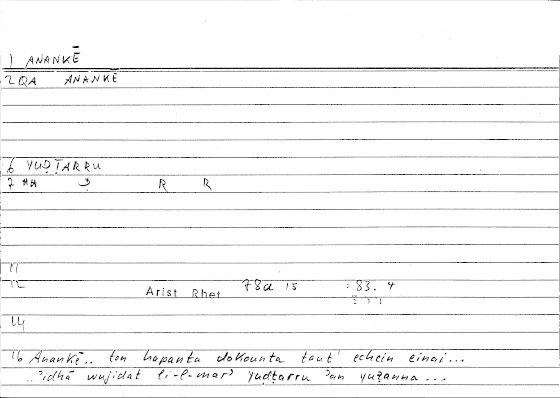 1 ANANKĒ
2 QA ANANKE
6 YUḌṬARRU
7 HH R R
11
12 Arist Rhet 78a 15 :83. 4
14
16 Anankē.. ton hapanta dokounta taut' echein einai...
..ʾidhā wujidat li-l-marʾ yuḍṭarru ʾan yuẓanna...